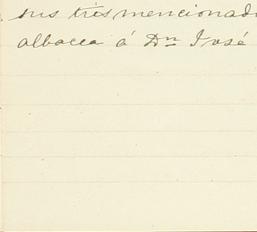 sus tres mencionad
albacea á Dn José